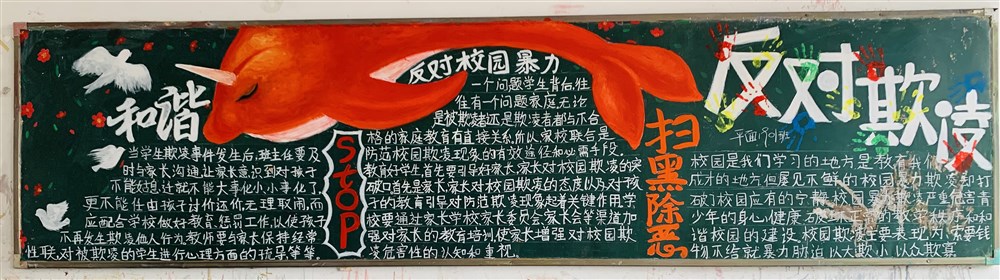 和谐
当学生欺凌事件发生后,班主任要及
时与家长沟通,让家长意识到对孩子
不能姑息迁就不能大事化小,小事化了,
更不能任由孩子讨价还价无理取闹,而
应配合学校做好教育,惩罚工作,以使孩子
不再发生欺凌他人行为,教师要与家长保持经常
性联,对被欺凌的学生进行心理方面的抚导等等
STOP
反对校园暴力
一个问题学生背后,往
往有一个问题家庭,无论
是被欺凌者还是欺凌者都与不合
格的家庭教育有直接关系,所以,家校联合是
防范校园欺凌现象的有效途径和必需手段
教育好学生,首先要引导好家长,家长对校园欺凌的突
破口首先是家长,家长对校园欺凌的态度以及对孩
子的教育引导对防范欺凌现象起着关键作用,学
校要通过家长学校家长委员会,家长会等渠道加
强对家长的教育培训,使家长增强对校园欺
凌危害性的认知和重视。
扫黑除恶
反对欺凌
平面1901班
校园是我们学习的地方是教育我们
成才的地方但屡见不鲜的校园暴力欺凌却打
破了校园应有的宁静,校园暴力欺凌严重危害青
少年的身心健康,破坏正常的教学秩序和和
谐校园的建设,校园欺凌主要表现为:索要钱
物,不给就暴力胁迫,以大欺小,以众欺寡